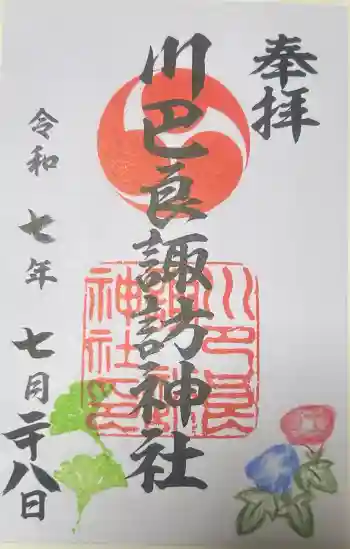 奉拝
川巴良諏訪神社
川巴良
諏訪
神社印
令和七年七月二十八日